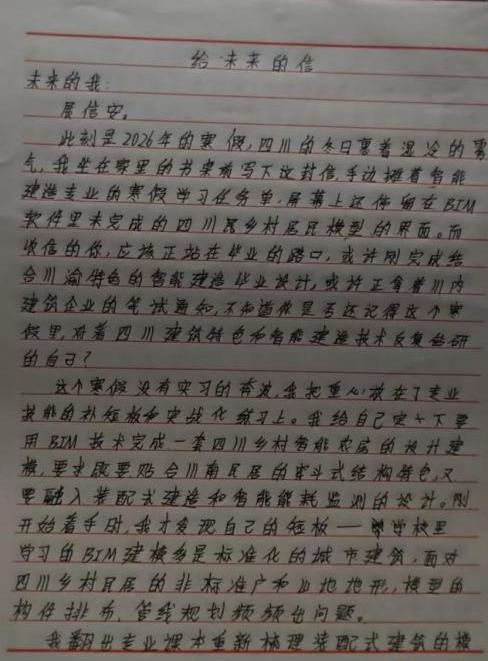 给未来的信
未来的我:
展信安。
此刻是2026年的寒假,四川的冬日裹着湿冷的雾
气,我坐在家里的书桌前写下这封信,手边摊着智能
建造专业的寒假学习任务单,屏幕上还停留在BIM
软件里未完成的四川民乡村居民模型的界面。而
收信的你,应该正站在毕业的路口,或许刚完成结
合川渝特色的智能建造毕业设计,或许正拿着川内
建筑企业的笔试通知,不知道你是否还记得这个寒
假里,对着四川建筑特色和智能建造技术反复钻研
的自己?
这个寒假没有实习的奔波,我把重心放在了专业
技能的补短板和实战化练习上。我给自己定下要
用BIM技术完成一套四川乡村智能农房的设计建
模,要求既要贴合川南民居的穿斗式结构特色,又
要融入装配式建造和智能能耗监测的设计。刚
开始着手时,我才发现自己的短板——学校里
学习的BIM建模多是标准化的城市建筑,面对
四川乡村民居的非标准户和山地地形,模型的
构件排布、管线规划频频出问题。
我翻出专业课本重新梳理装配式建筑的模